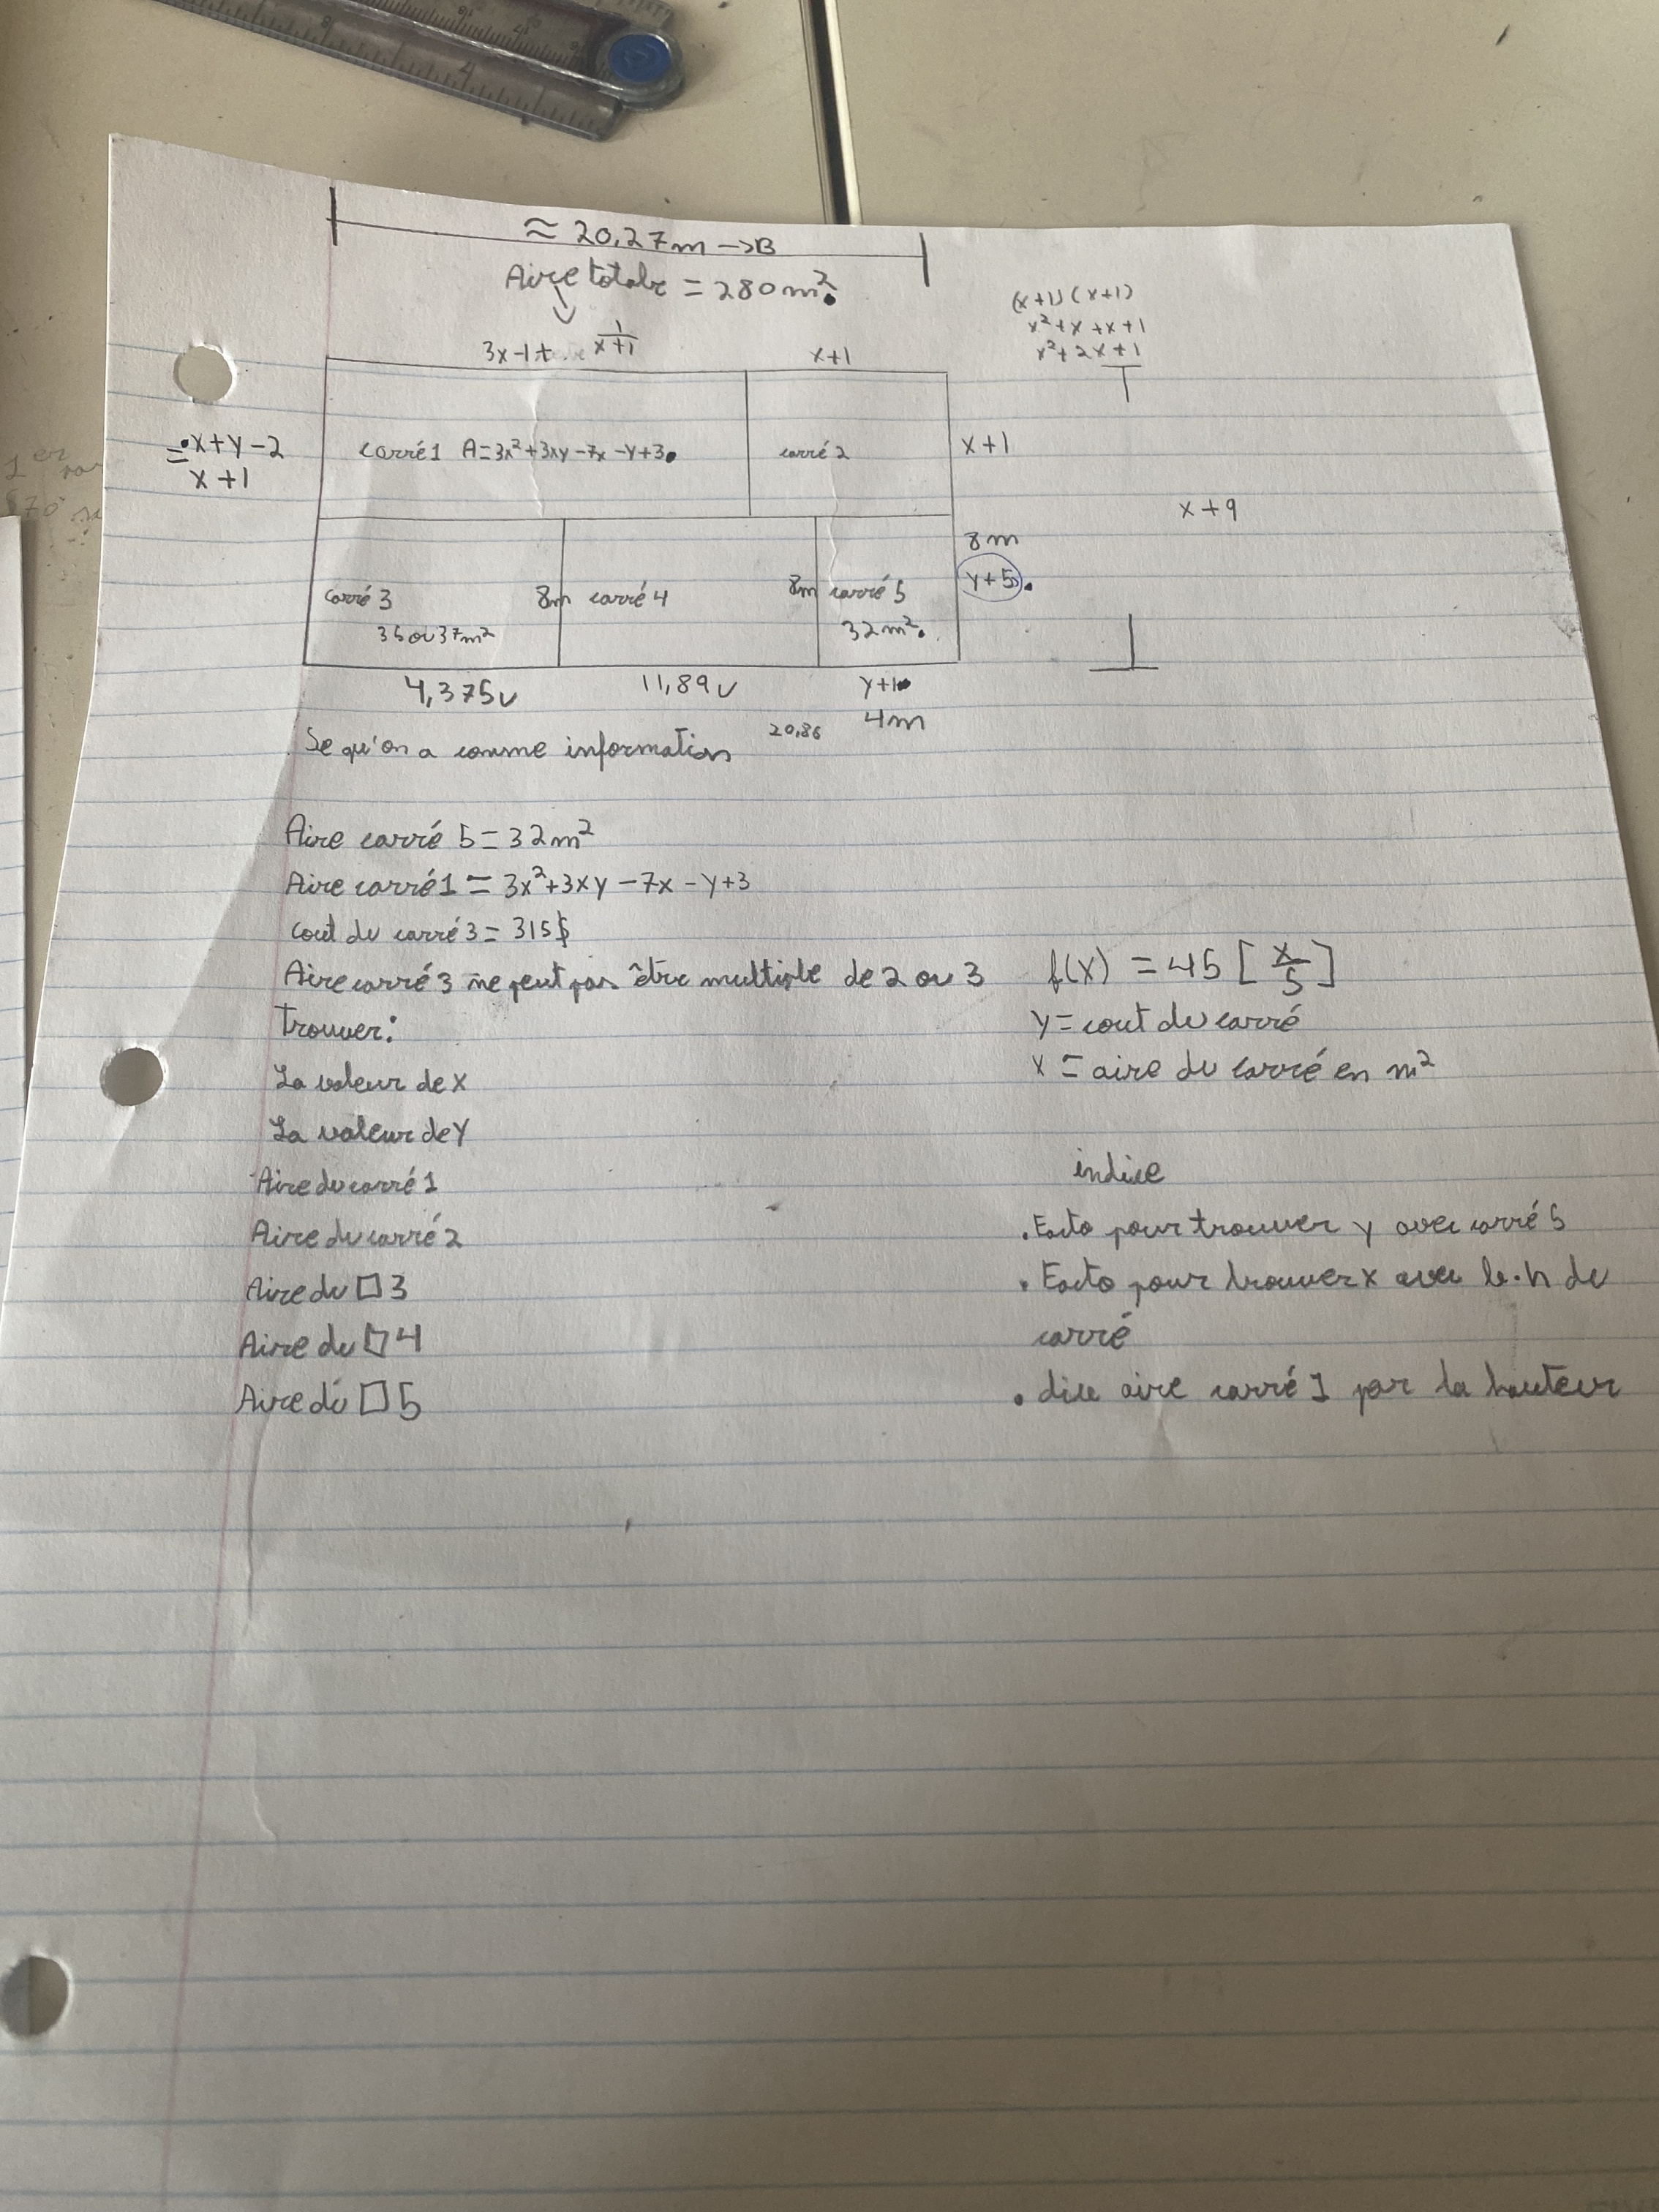 ≈ 20,27m →B
Aire totale = 280m².
3x-1+ 1/(x+1)
x+1
(x+1)(x+1)
x²+x+x+1
x²+2x+1
= x+y-2
x+1
carré 1 A=3x²+3xy-7x-y+3.
carré 2
x+1
x+9
8m
y+5.
carré 3
8m
carré 4
8m
carré 5
35 ou 37m²
32m².
4,375
11,89
y+1
4m
20,86
Se qu'on a comme information
Aire carré 5 = 32m²
Aire carré 1 = 3x²+3xy-7x-y+3
cout du carré 3 = 315$
Aire carré 3 ne peut pas être multiple de 2 ou 3
f(x) = 45 [x/5]
Trouver:
y = cout du carré
La valeur de x
x = aire du carré en m²
La valeur de y
Aire du carré 1
indice
Aire du carré 2
. Facto pour trouver y avec carré 5
Aire du □ 3
. Facto pour trouver x avec b·h du
Aire du □ 4
carré
Aire du □ 5
. aire carré 1 par la hauteur